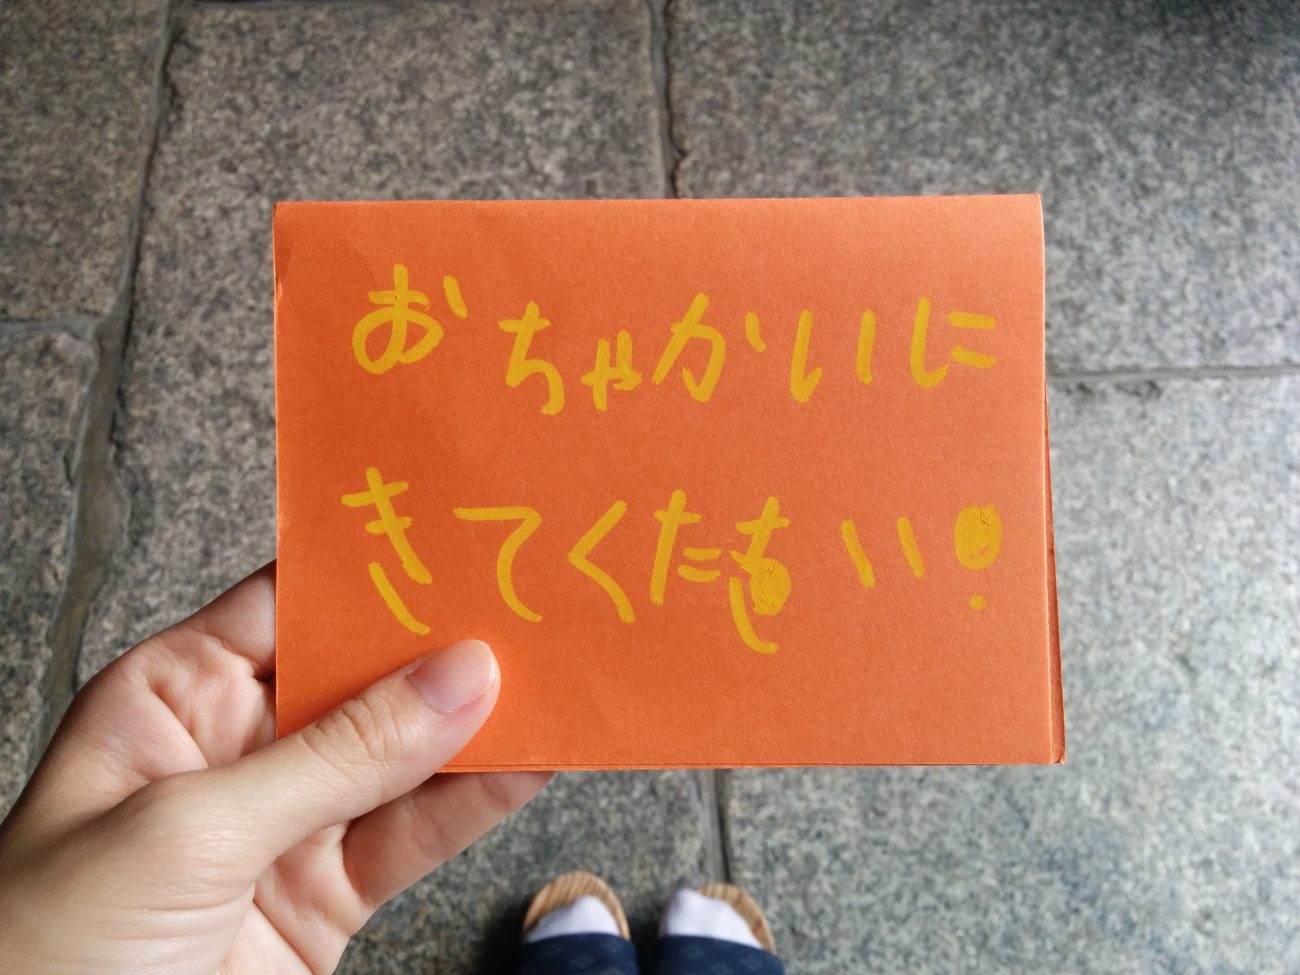 おちゃかいに
きてくたさい!